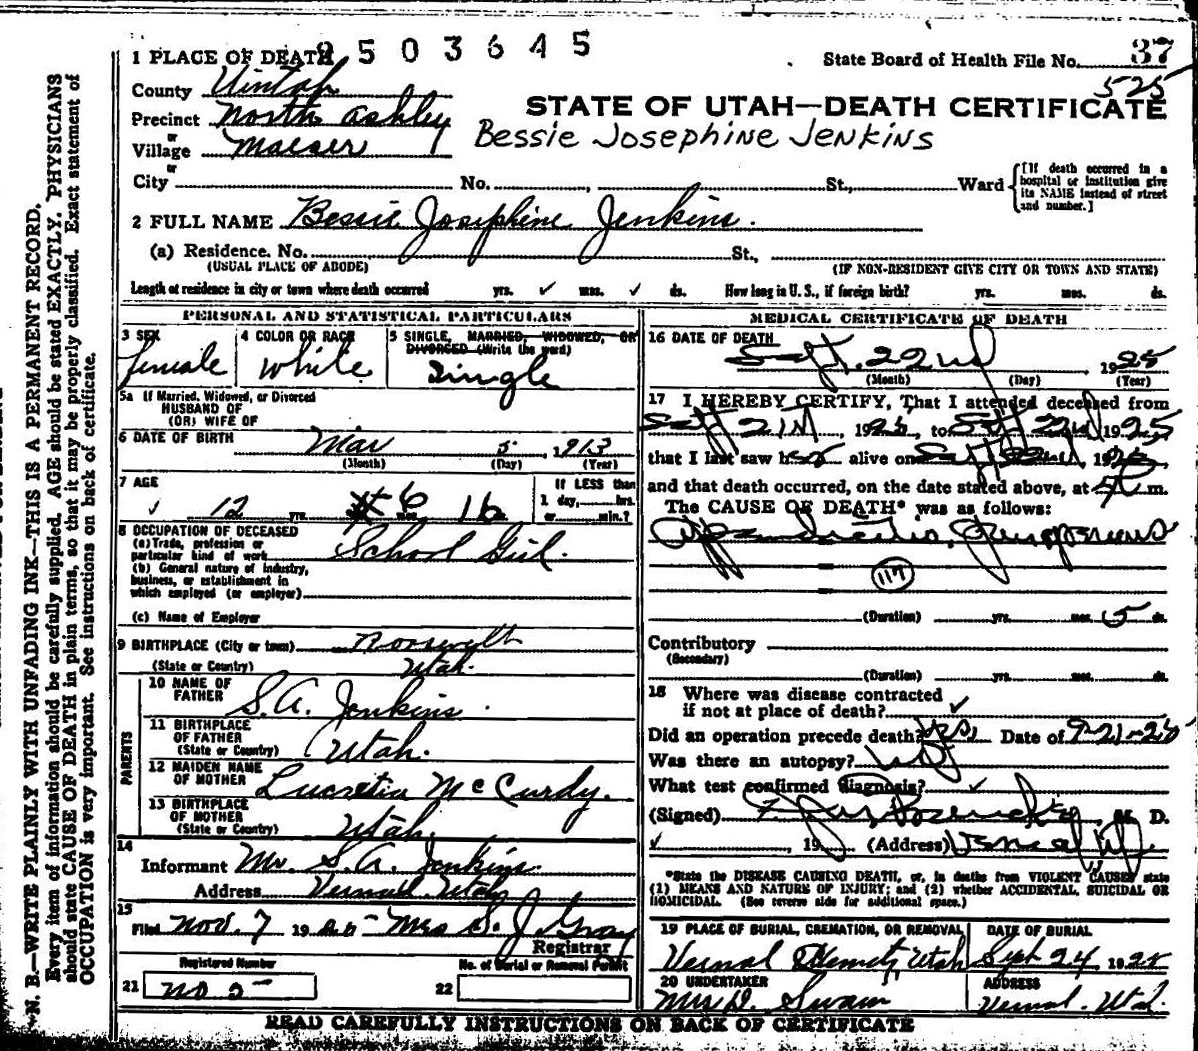 2503645
1 PLACE OF DEATH
State Board of Health File No. 37
525
County Uintah
STATE OF UTAH—DEATH CERTIFICATE
Precinct North Ashley
Bessie Josephine Jenkins
or
Village Maeser
or
City No. St., Ward
[If death occurred in a hospital or institution give its NAME instead of street and number.]
2 FULL NAME Bessie Josephine Jenkins.
(a) Residence. No. St.,
(USUAL PLACE OF ABODE) (IF NON-RESIDENT GIVE CITY OR TOWN AND STATE)
Length of residence in city or town where death occurred yrs. ✓ mos. ✓ ds. How long in U. S., if foreign birth? yrs. mos. ds.
PERSONAL AND STATISTICAL PARTICULARS
3 SEX
female
4 COLOR OR RACE
White
5 SINGLE, MARRIED, WIDOWED, OR
DIVORCED (Write the word)
Single
5a If Married, Widowed, or Divorced
HUSBAND OF
(OR) WIFE OF
6 DATE OF BIRTH Mar 5, 1913
(Month) (Day) (Year)
7 AGE
✓ 12 yrs. 6 mos. 16
If LESS than
1 day,......hrs.
or......min.?
8 OCCUPATION OF DECEASED
(a) Trade, profession or
particular kind of work School Girl.
(b) General nature of industry,
business, or establishment in
which employed (or employer)
(c) Name of Employer
9 BIRTHPLACE (City or town) Roosevelt
(State or Country) Utah.
PARENTS
10 NAME OF
FATHER S. A. Jenkins.
11 BIRTHPLACE
OF FATHER
(State or Country) Utah.
12 MAIDEN NAME
OF MOTHER Lucretia McCurdy.
13 BIRTHPLACE
OF MOTHER
(State or Country) Utah.
14
Informant Mr. S. A. Jenkins
Address Vernal Utah
15
Filed Nov. 7 19 Mrs S. J. Gray
Registrar
Registered Number
No. of Burial or Removal Permit
21 No 5 22
MEDICAL CERTIFICATE OF DEATH
16 DATE OF DEATH
Sept. 22nd 1925
(Month) (Day) (Year)
17 I HEREBY CERTIFY, That I attended deceased from
Sept 21st, 1925, to Sept 22nd 1925
that I last saw her alive on Sept 22nd, 1925
and that death occurred, on the date stated above, at m.
The CAUSE OF DEATH* was as follows:
Appendicitis, Gangrenous
117
(Duration) yrs. mos. 5 ds.
Contributory
(Secondary)
(Duration) yrs. mos. ds.
18 Where was disease contracted
if not at place of death? ✓
Did an operation precede death? Yes, Date of 9-21-25
Was there an autopsy?
What test confirmed diagnosis? ✓
(Signed) M. D.
✓, 19 (Address) Vernal Ut
*State the DISEASE CAUSING DEATH, or, in deaths from VIOLENT CAUSES state
(1) MEANS AND NATURE OF INJURY; and (2) whether ACCIDENTAL, SUICIDAL OR
HOMICIDAL. (See reverse side for additional space.)
19 PLACE OF BURIAL, CREMATION, OR REMOVAL
Vernal Utah
DATE OF BURIAL
Sept 24 1925
20 UNDERTAKER
Mrs D. Swain
ADDRESS
Vernal. Utah.
READ CAREFULLY INSTRUCTIONS ON BACK OF CERTIFICATE
N. B.—WRITE PLAINLY WITH UNFADING INK—THIS IS A PERMANENT RECORD.
Every item of information should be carefully supplied. AGE should be stated EXACTLY. PHYSICIANS
should state CAUSE OF DEATH in plain terms, so that it may be properly classified. Exact statement of
OCCUPATION is very important. See instructions on back of certificate.